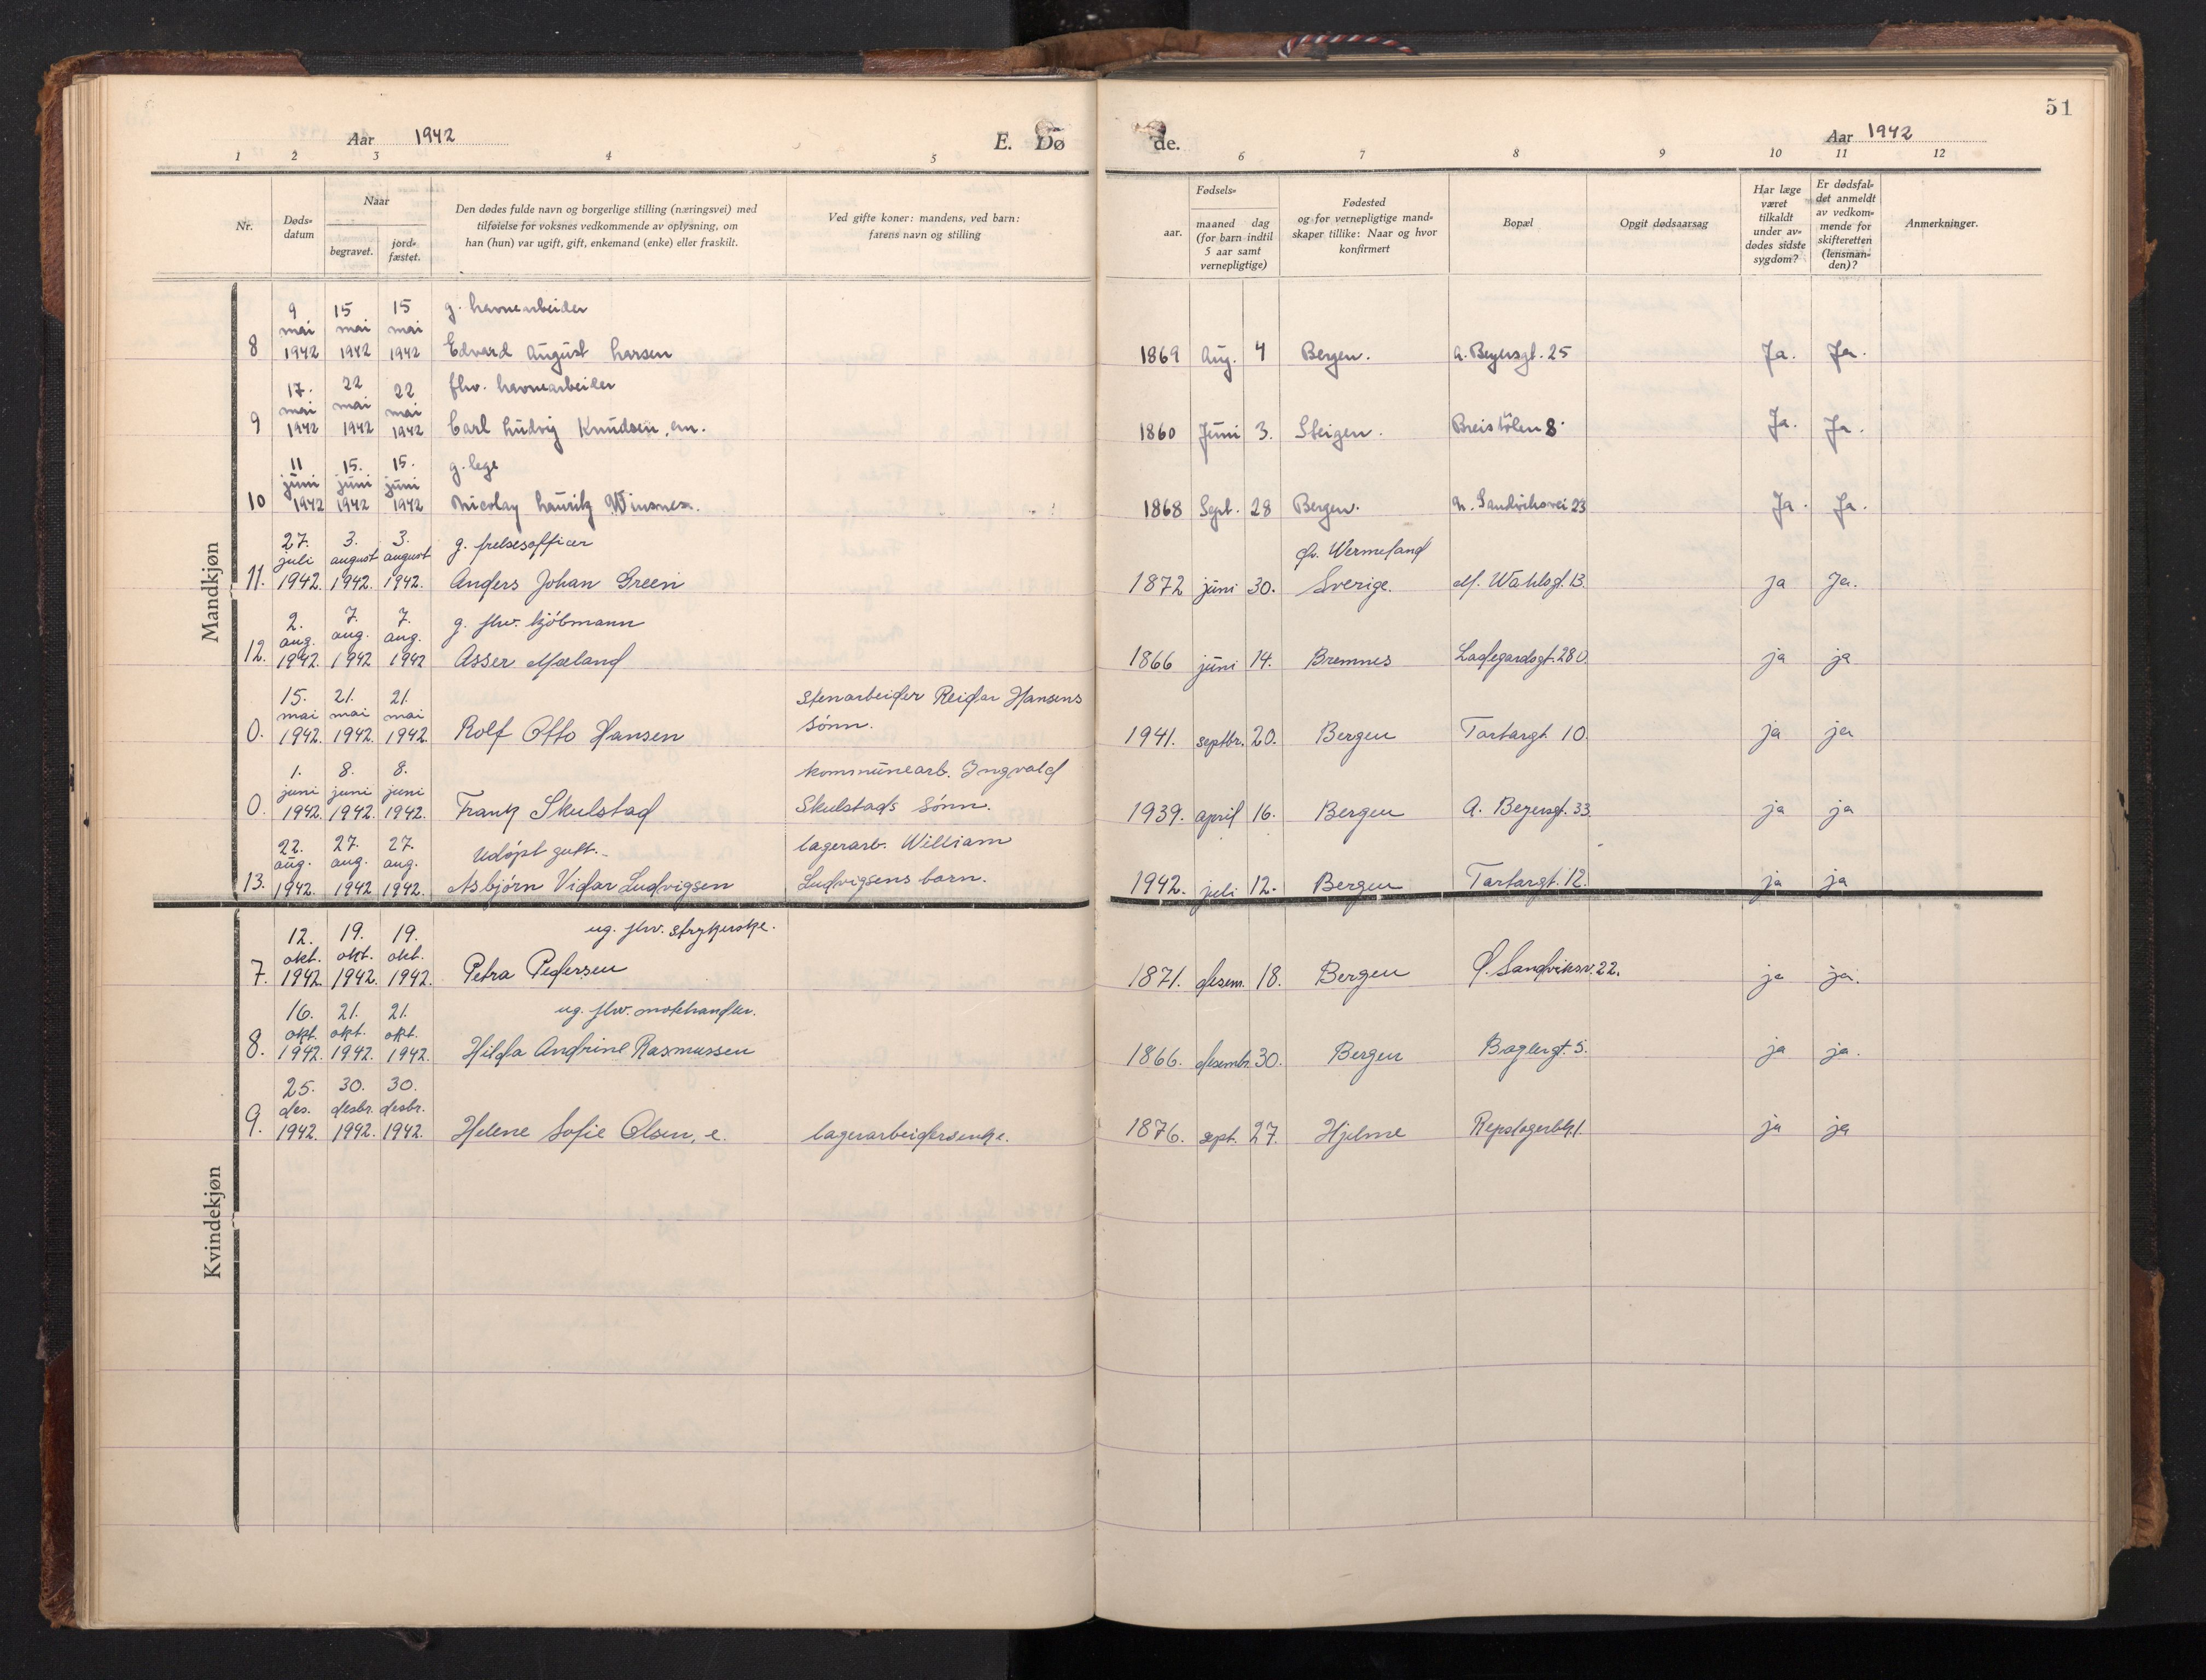 51
Aar 1942 E. Dø de. Aar 1942
1 2 3 4 5 6 7 8 9 10 11 12
Nr.
Døds-
datum
Naar
begravet.
jord-
fæstet.
Den dødes fulde navn og borgerlige stilling (næringsvei) med
tilføielse for voksnes vedkommende av oplysning, om
han (hun) var ugift, gift, enkemand (enke) eller fraskilt.
Ved gifte koner: mandens, ved barn:
farens navn og stilling
Fødsels-
aar.
maaned dag
(for barn indtil
5 aar samt
vernepligtige)
Fødested
og for vernepligtige mand-
skaper tillike: Naar og hvor
konfirmert
Bopæl
Opgit dødsaarsag
Har læge
været
tilkaldt
under av-
dødes sidste
sygdom?
Er dødsfal-
det anmeldt
av vedkom-
mende for
skifteretten
(lensman-
den)?
Anmerkninger.
Mandkjøn
9 15 15 g. havnearbeider
mai mai mai
8 1942 1942 1942 Edvard August Larsen 1869 Aug. 4 Bergen. A. Beyersgt. 25 Ja. Ja.
17. 22 22 fhv. havnearbeider
mai mai mai
9 1942 1942 1942 Carl Ludvig Knudsen, em. 1860 Juni 3. Steigen. Breistölen 8. Ja. Ja.
11 15. 15. g. lege
juni juni juni
10 1942 1942 1942 Nicolay Lauritz Winsnes. 1868 Sept. 28 Bergen. N. Sandviksvei 23 Ja. Ja.
27. 3. 3. g. frelsesofficer Ø. Wermeland
juli august august
11. 1942. 1942. 1942. Anders Johan Green 1872 juni 30. Sverige. M. Wahlsgt. 13. ja Ja.
2. 7. 7. g. fhv. kjöbmann
aug. aug. aug.
12. 1942. 1942 1942 Asser Mæland 1866 juni 14. Bremnes Ladegardsgt. 28 ja ja
15. 21. 21. stenarbeider Reidar Hansens
mai mai mai sönn.
0. 1942. 1942. 1942. Rolf Otto Hansen 1941. septbr. 20. Bergen Tartargt. 10. ja ja
1. 8. 8. kommunearb. Ingvald
juni juni juni
0. 1942. 1942. 1942. Frank Skulstad Skulstads sönn. 1939. april 16. Bergen A. Beyersgt. 33. ja ja
22. 27. 27. Udöpt gutt. lagerarb. William
aug. aug. aug.
13. 1942. 1942 1942. Asbjörn Vidar Ludvigsen Ludvigsens barn. 1942. juli 12. Bergen Tartargt. 12. ja ja
Kvindekjøn
12. 19. 19. ug. fhv. strykerske.
okt. okt. okt.
7. 1942. 1942. 1942. Petra Pedersen 1871. desem. 18. Bergen Ø. Sandviksv. 22. ja ja.
16. 21. 21. ug. fhv. motehandler.
okt. okt. okt.
8. 1942. 1942. 1942. Hilda Andrine Rasmussen 1866. desembr. 30. Bergen Baglergt. 5. ja ja.
25. 30. 30.
des. desbr. desbr.
9. 1942. 1942. 1942. Helene Sofie Olsen, e. lagerarbeidersenke. 1876. sept. 27. Hjelme Repslagerbk. 1. ja ja